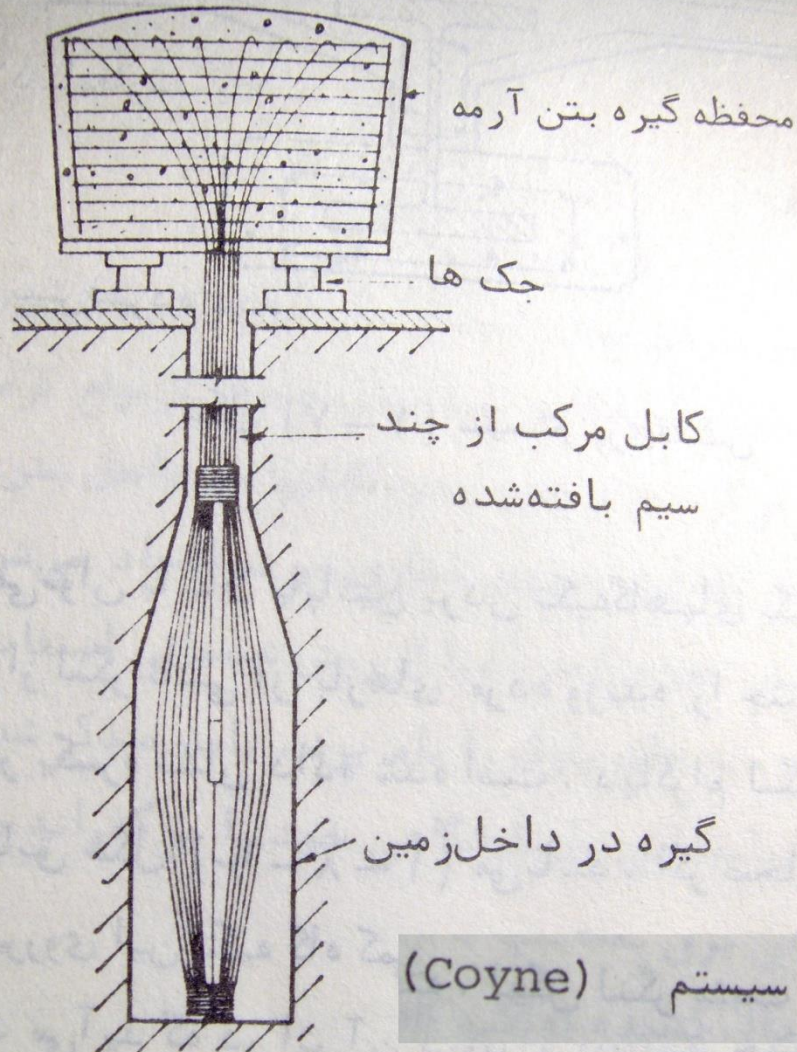 محفظه گیره بتن آرمه
جک ها
کابل مرکب از چند
سیم بافته‌شده
گیره در داخل‌زمین
سیستم (Coyne)